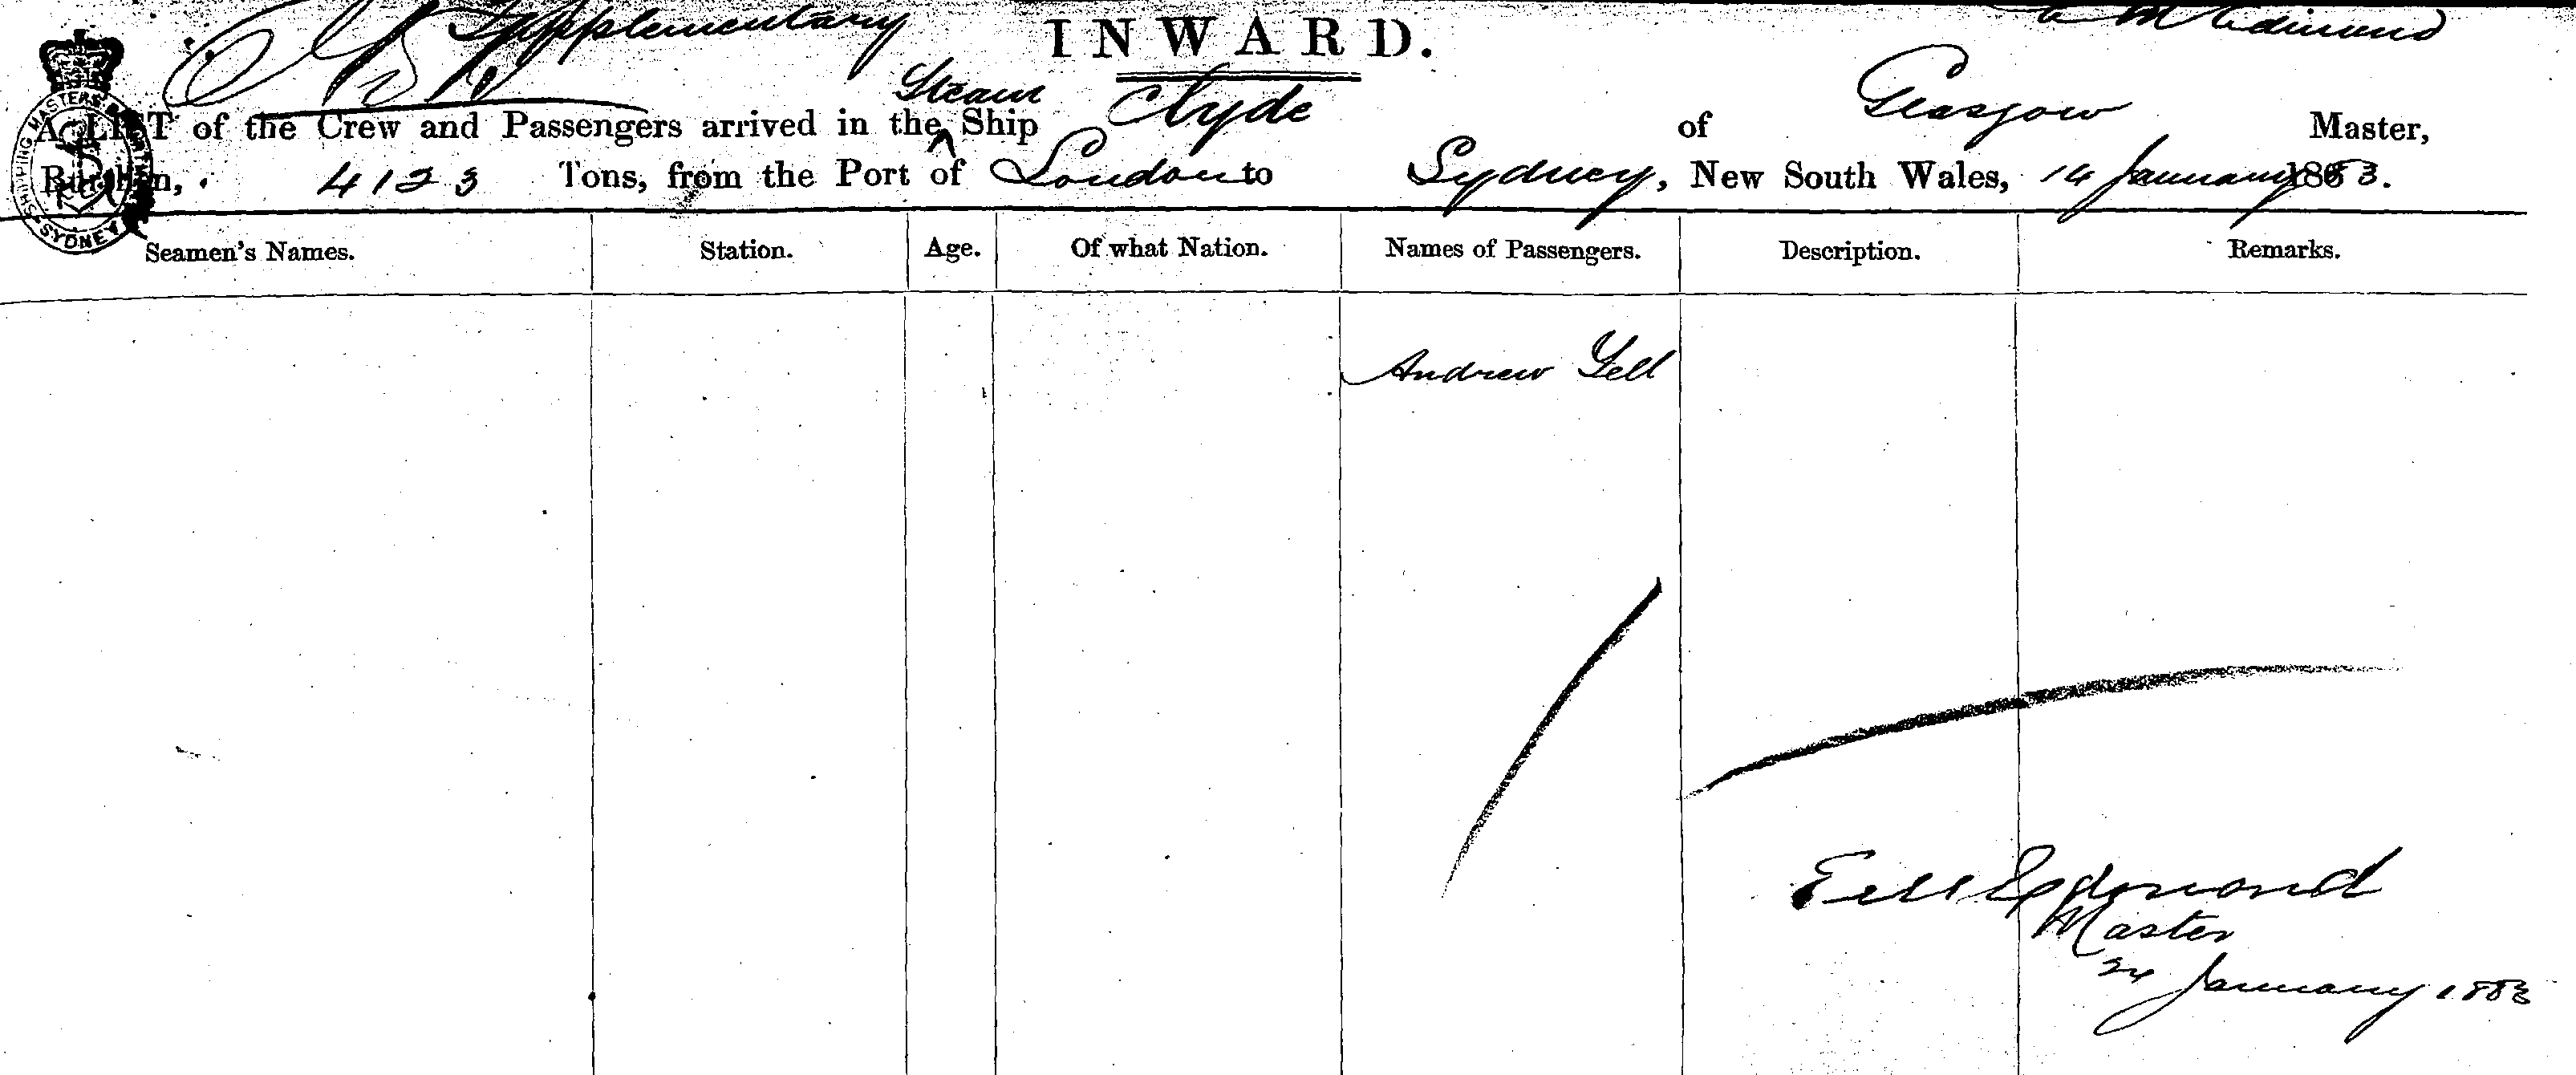 Supplementary
INWARD.
A LIST of the Crew and Passengers arrived in the Steam Ship Clyde of Glasgow Master,
Burthen, 4123 Tons, from the Port of London to Sydney, New South Wales, 14 January 1883.
SHIPPING MASTER'S SYDNEY
Seamen's Names. Station. Age. Of what Nation. Names of Passengers. Description. Remarks.
Andrew Yell
Edmond
Master
24 January 1883